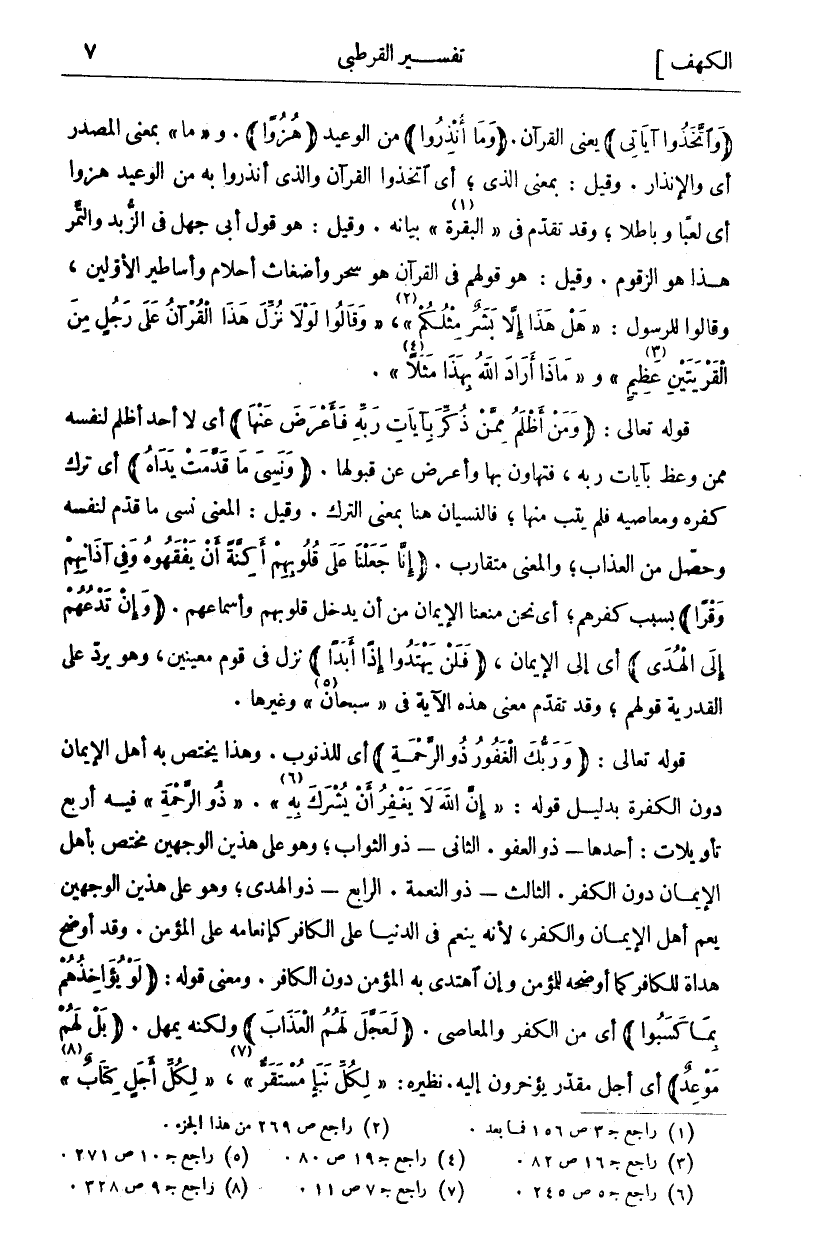 الكهف ] تفسير القرطبي ٧
﴿وَٱتَّخَذُوا آيَاتِى﴾ يعنى القرآن. ﴿وَمَا أُنْذِرُوا﴾ من الوعيد ﴿هُزُوًا﴾ . و « ما » بمعنى المصدر
أى والإنذار . وقيل : بمعنى الذى ؛ أى ٱتخذوا القرآن والذى أنذروا به من الوعيد هزوا
أى لعبًا و باطلا ؛ وقد تقدّم فى « البقرة » (١) بيانه . وقيل : هو قول أبى جهل فى الزُّبد والتَّمر
هـذا هو الزقوم . وقيل : هو قولهم فى القرآن هو سحر وأضغاث أحلام وأساطير الأوّلين ،
وقالوا للرسول : « هَلْ هَذَا إِلَّا بَشَرٌ مِثْلُكُمْ » (٢) ، « وَقَالُوا لَوْلَا نُزِّلَ هَذَا الْقُرْآنُ عَلَى رَجُلٍ مِنَ
الْقَرْيَتَيْنِ عَظِيمٍ » (٣) و « مَاذَا أَرَادَ اللهُ بِهَذَا مَثَلًا » (٤) .
قوله تعالى : ﴿ وَمَنْ أَظْلَمُ مِمَّنْ ذُكِّرَ بِآيَاتِ رَبِّهِ فَأَعْرَضَ عَنْهَا ﴾ أى لا أحد أظلم لنفسه
ممن وعظ بآيات ربه ، فتهاون بها وأعرض عن قبولها . ﴿ وَنَسِىَ مَا قَدَّمَتْ يَدَاهُ ﴾ أى ترك
كفره ومعاصيه فلم يتب منها ؛ فالنسيان هنا بمعنى الترك . وقيل : المعنى نسى ما قدّم لنفسه
وحصّل من العذاب؛ والمعنى متقارب . ﴿إِنَّا جَعَلْنَا عَلَى قُلُوبِهِمْ أَكِنَّةً أَنْ يَفْقَهُوهُ وَفِى آذَانِهِمْ
وَقْرًا﴾ بسبب كفرهم؛ أى نحن منعنا الإيمان من أن يدخل قلوبهم وأسماعهم . ﴿وَإِنْ تَدْعُهُمْ
إِلَى الْهُدَى ﴾ أى إلى الإيمان ، ﴿ فَلَنْ يَهْتَدُوا إِذًا أَبَدًا ﴾ نزل فى قوم معينين، وهو يردّ على
القدرية قولهم ؛ وقد تقدّم معنى هذه الآية فى « سبحان » (٥) وغيرها .
قوله تعالى : ﴿ وَرَبُّكَ الْغَفُورُ ذُو الرَّحْمَةِ ﴾ أى للذنوب . وهذا يختص به أهل الإيمان
دون الكفرة بدليـل قوله : « إِنَّ اللهَ لَا يَغْفِرُ أَنْ يُشْرَكَ بِهِ » (٦) . « ذُو الرَّحْمَةِ » فيـه أربع
تأويلات : أحدها – ذو العفو . الثانى – ذو الثواب ؛ وهو على هذين الوجهين مختص بأهل
الإيمـان دون الكفر . الثالث – ذو النعمة . الرابع – ذو الهدى ؛ وهو على هذين الوجهين
يعم أهل الإيمـان والكفر، لأنه ينعم فى الدنيـا على الكافر كإنعامه على المؤمن . وقد أوضح
هداه للكافر كما أوضحه للمؤمن و إن ٱهتدى به المؤمن دون الكافر . ومعنى قوله : ﴿ لَوْ يُؤَاخِذُهُمْ
بِمَـا كَسَبُوا ﴾ أى من الكفر والمعاصى . ﴿ لَعَجَّلَ لَهُمُ الْعَذَابَ ﴾ ولكنه يمهل . ﴿ بَلْ لَهُمْ
مَوْعِدٌ﴾ أى أجل مقدّر يؤخرون إليه. نظيره: « لِكُلِّ نَبَإٍ مُسْتَقَرٌّ » (٧) ، « لِكُلِّ أَجَلٍ كِتَابٌ » (٨)
(١) راجع جـ ٣ ص ١٥٦ فما بعد . (٢) راجع ص ٢٦٩ من هذا الجزء .
(٣) راجع جـ ١٦ ص ٨٢ . (٤) راجع جـ ١٩ ص ٨٠ . (٥) راجع جـ ١٠ ص ٢٧١ .
(٦) راجع جـ ٥ ص ٢٤٥ . (٧) راجع جـ ٧ ص ١١ . (٨) راجع جـ ٩ ص ٣٢٨ .